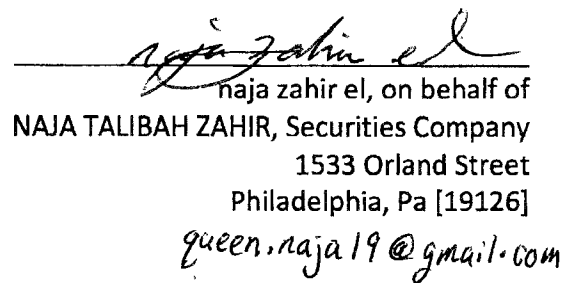 naja zahir el
naja zahir el, on behalf of
NAJA TALIBAH ZAHIR, Securities Company
1533 Orland Street
Philadelphia, Pa [19126]
queen.naja19@gmail.com